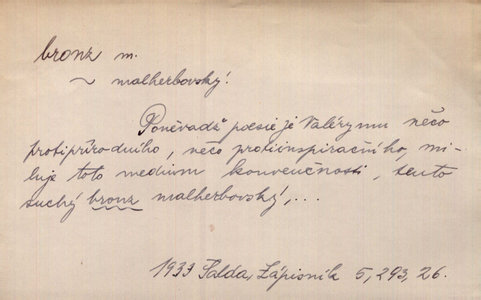 bronz m.
~ malherbovský!
Poněvadž poesie je Valérymu něčo
protipřírodního, něčo protiinspiračního, mi-
luje toto medium konvenčnosti, tento
suchý bronz malherbovský,...
1933 Šalda, Zápisník 5, 293, 26.